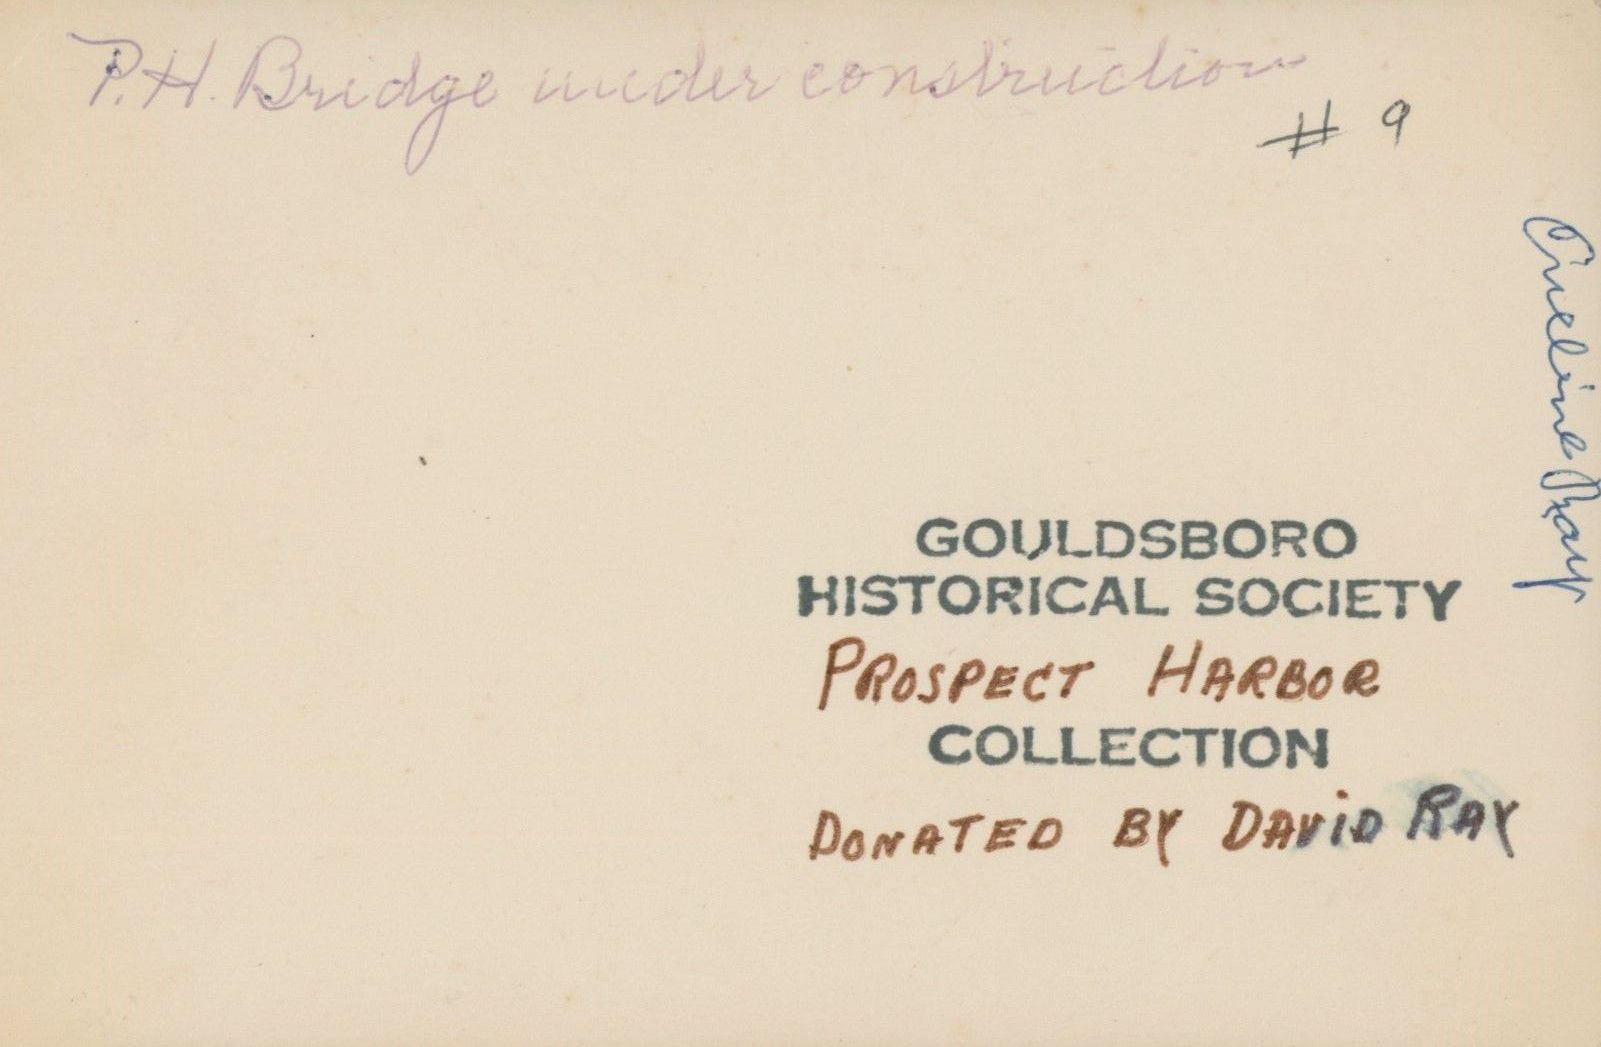 P.H. Bridge under construction
# 9
GOULDSBORO
HISTORICAL SOCIETY
PROSPECT HARBOR
COLLECTION
DONATED BY DAVID RAY
Ray